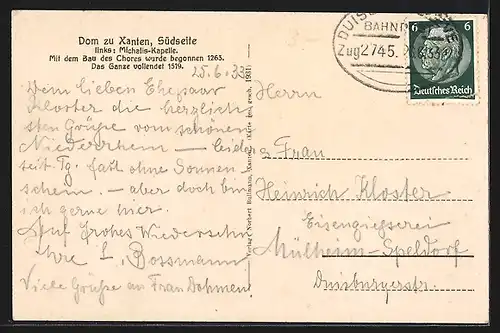 Dom zu Xanten, Südseite
links: Michalis-Kapelle.
Mit dem Bau des Chores wurde begonnen 1263.
Das Ganze vollendet 1519.
25.6.33
Dem lieben Ehepaar
Kloster die herzlich
sten Grüße vom schönen
Niederrhein – leider
seit Tg. fast ohne Sonnen
schein. – aber doch bin
ich gerne hier.
Auf frohes Wiedersehn
Ihre L. Bossmann
Viele Grüße an Frau Dohmen
Verlag: Norbert Xanten (Karte ges. gesch. 1931)
BAHNP
Zug 2745
6
Deutsches Reich
Herrn
u. Frau
Heinrich Kloster
Eisengießerei
Mülheim-Speldorf
Duisburgerstr.